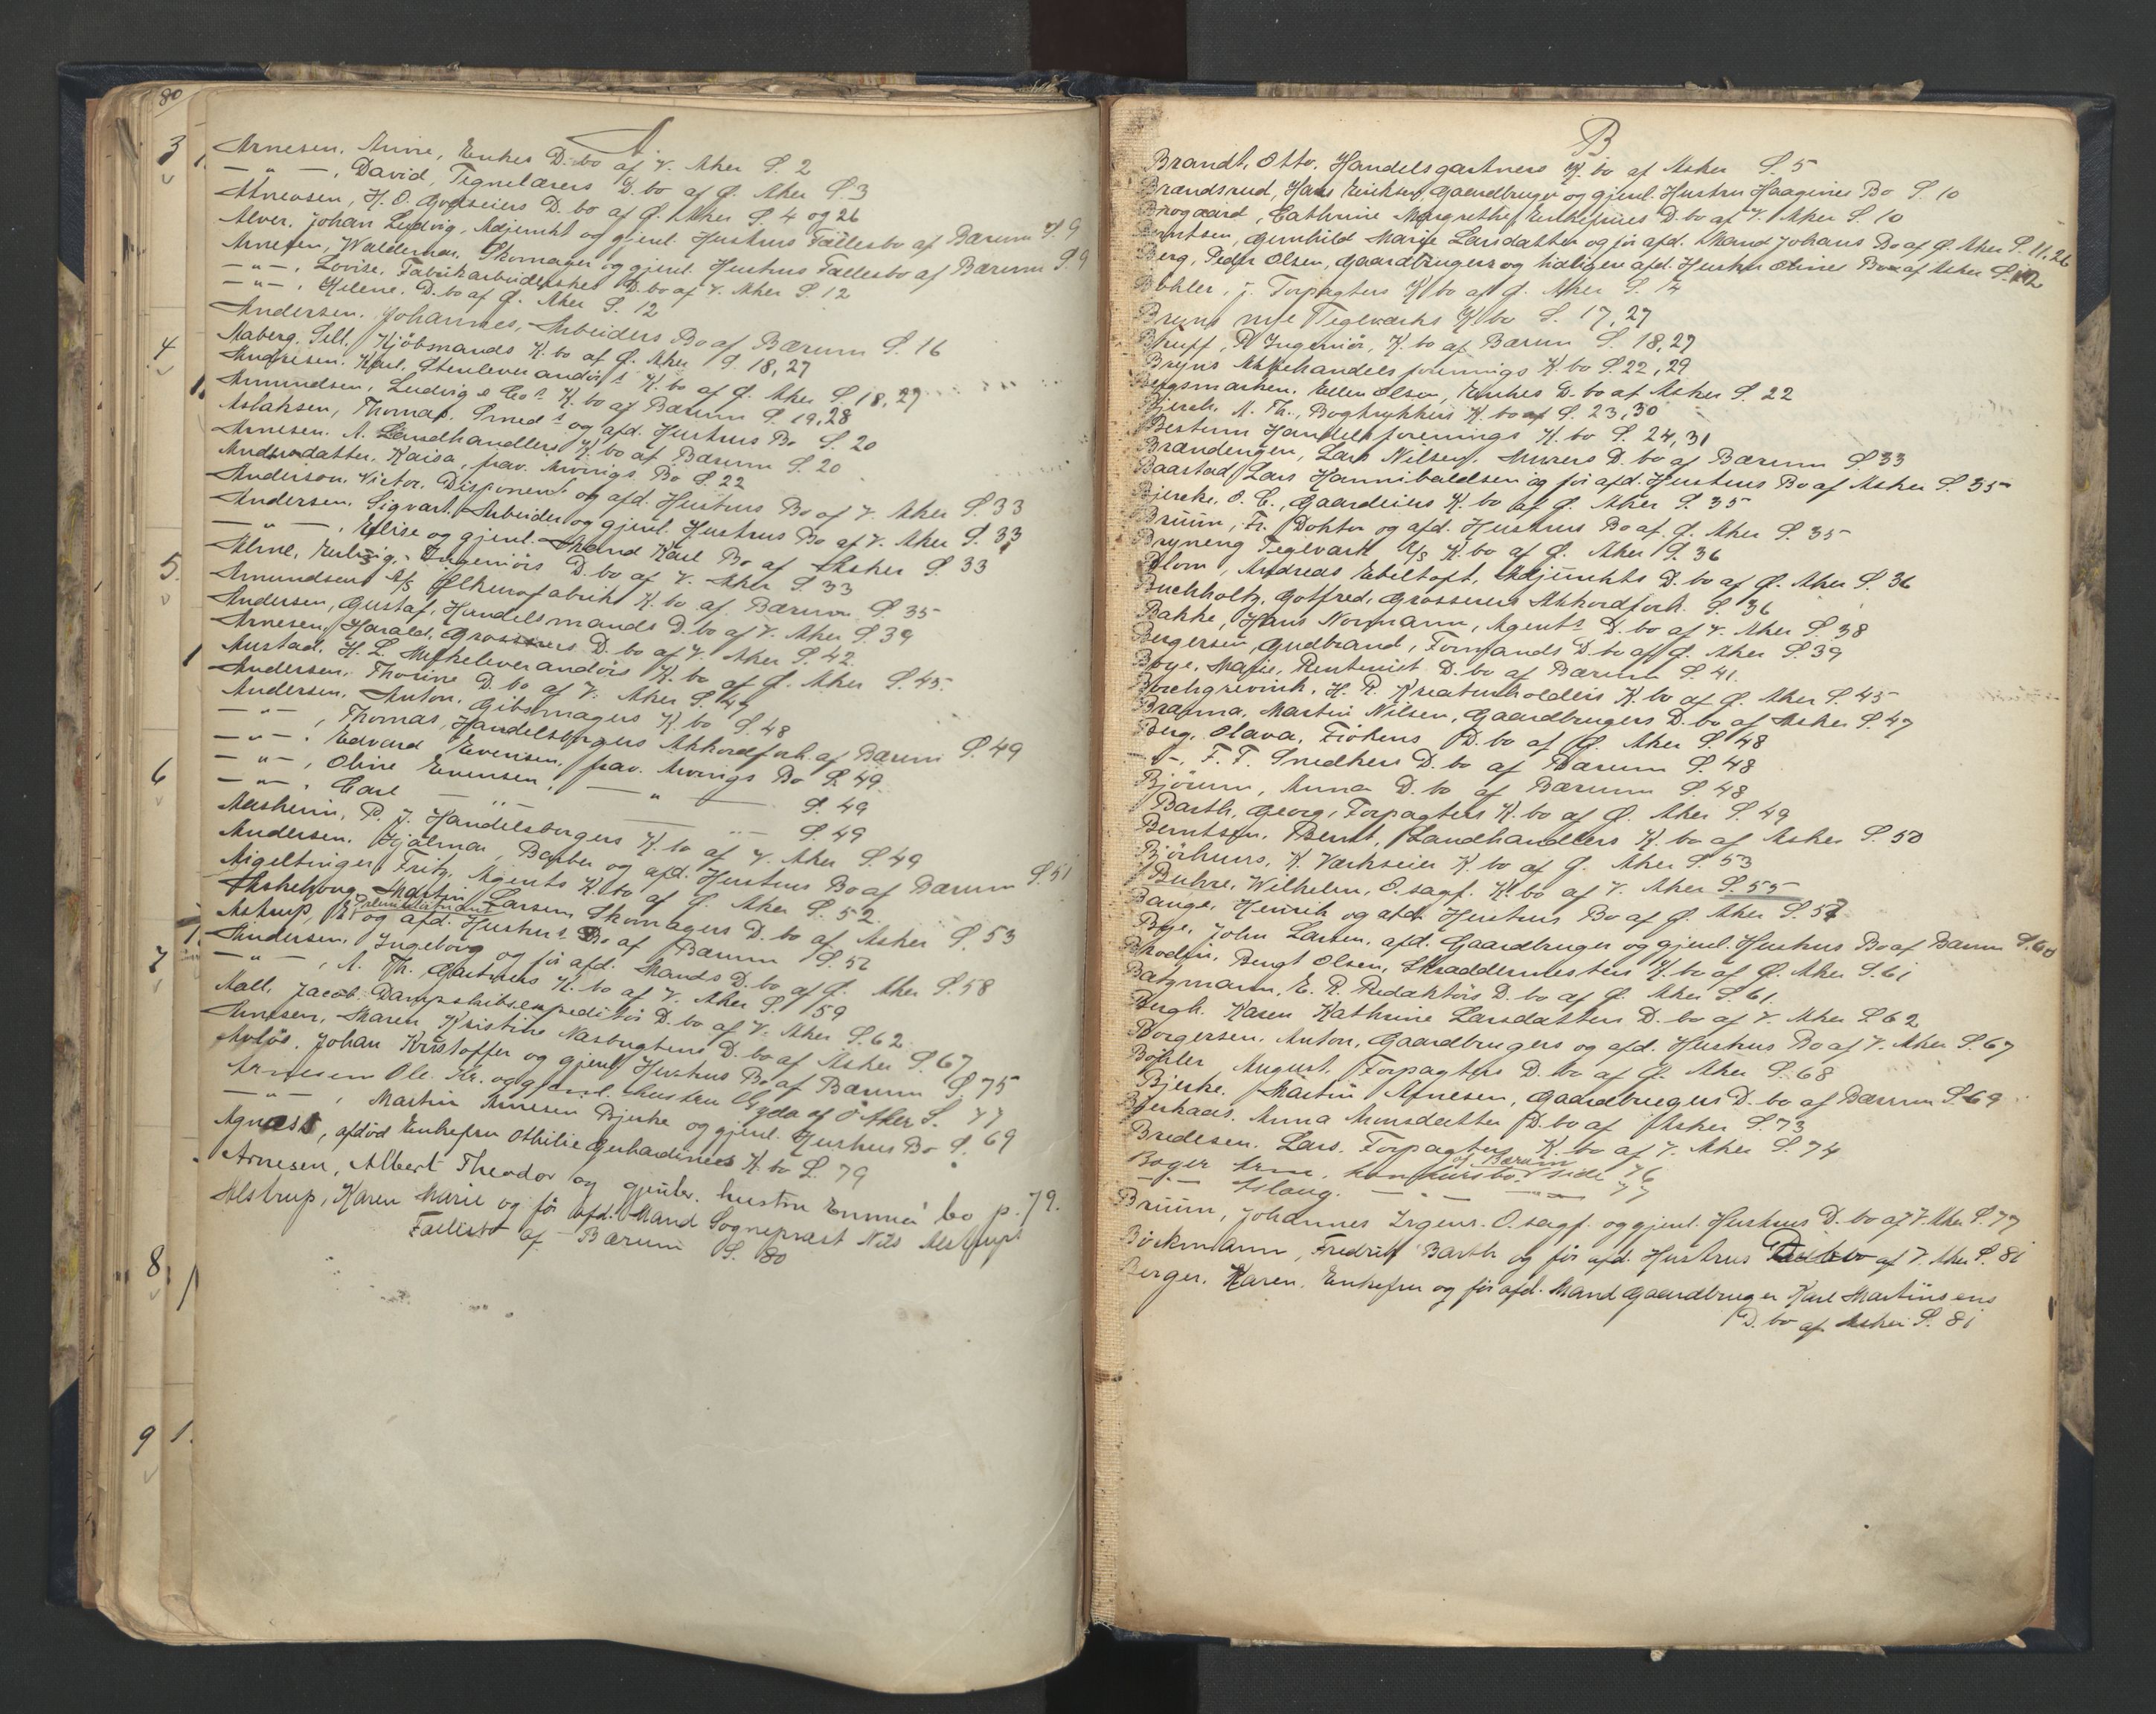 80
3
4
5.
6
7
8
9
A.
Arnesen, Anne, Enkes D.bo af V. Aker S. 2
— " —, David, Tegnelærers D.bo af Ø. Aker S. 3
H. O. Godseiers D.bo af Ø. Aker S. 4 og 26
Alver, Johan Ludvig, Adjunkt og gjenl. Hustrus Fællesbo af Bærum S. 9
Arnesen, Waldemar, Skomager og gjenl. Hustrus Fællesbo af Bærum S. 9
— " —, Lovise, Fabrikarbeiderskes D.bo af V. Aker S. 12
— " —, Helene, D.bo af Ø. Aker S. 12
Andersen, Johannes, Arbeiders Bo af Bærum S. 16
Aaberg, Sell, Kjöbmands K.bo af Ø. Aker S. 18, 27
Karl, Stenleverandörs K.bo af Ø. Aker S. 18, 27
Amundsen, Ludvig & Co's K.bo af Bærum S. 19, 28
Aslaksen, Thomas, Smeds og afd. Hustrus Bo S. 20
Arnesen, A. Landhandlers K.bo af Bærum S. 20
Kaisa, frav. Arvings Bo S. 22
Anderson, Victor, Disponent og afd. Hustrus Bo af V. Aker S. 33
Andersen, Sigvart, Arbeider og gjenl. Hustrus Bo af V. Aker S. 33
— " —, Elise og gjenl. Mand Karl Bo af Asker S. 33
Ingeniörs D.bo af V. Aker S. 33
Amundsens A/S K.bo af Bærum S. 35
Andersen, Gustaf, Handelsmands D.bo af V. Aker S. 39
Arnesen, Harald, Grosserers D.bo af V. Aker S. 42
Austad, H. L. Melkeleverandörs K.bo af Ø. Aker S. 45.
Andersen, Thorine D.bo af V. Aker S. 47
Andersen, Anton, Gibsmagers K.bo S. 48
— " —, Thomas, Handelsborgers Akkordforh. af Bærum S. 49
— " —, Edvard Evensen, frav. Arvings Bo S. 49
— " —, Oline Evensen, — " — S. 49
— " —, Carl — " — S. 49
Aasheim, P. J. Handelsborgers K.bo af V. Aker S. 49
Andersen, Hjalmar, Barber og afd. Hustrus Bo af Bærum S. 51
Aigeltinger, Fritz, Agents K.bo af Ø. Aker S. 52
Martin Larsen, Skomagers D.bo af Asker S. 53
Astrup, E. Premierløitnant og afd. Hustrus Bo af Bærum S. 56
Andersen, Ingeborg og för afd. Mands D.bo af Ø. Aker S. 58
— " —, A. Th. Gartners K.bo af V. Aker S. 59
Aall, Jacob, Dampskibsexpeditör D.bo af V. Aker S. 62
Arnesen, Maren Kristine Næsbugtens D.bo af Asker S. 67
Avlös, Johan Kristoffer og gjenl. Hustrus Bo af Bærum S. 75
Arnesen Ole Kr. og gjenl. hustru Gyda af Ö. Aker S. 77
— " —, Martin Arnesen Bjerke og gjenl. Hustrus Bo S. 69
Agnæss, afdöd Enkefru Othilie Gerhardines K.bo S. 79
Arnesen, Albert Theodor og gjenlev. hustru Emma bo p. 79.
Alstrup, Karen Marie og för afd. Mand Sogneprest Nils Alstrups
Fællesbo af Bærum S. 80
B
Brandt, Otto, Handelsgartners K.bo af Asker S. 5
Brændsrud, Hans Eriksen, Gaardbruger og gjenl. Hustru Haagines Bo S. 10
Brogaard, Cathrine Margrethe, Enkefrues D.bo af V. Aker S. 10
Berntsen, Gunhild Marie Larsdatter og för afd. Mand Johans Bo af Ø. Aker S. 11, 26
Berg, Peder Olsen, Gaardbrugers og tidligere afd. Hustru Olines Bo af Asker S. 12
Böhler, J. Forpagters K.bo af Ø. Aker S. 14
Bryns nye Teglværks K.bo S. 17, 27
Ingeniör, K.bo af Bærum S. 18, 27
Bryns Aktiehandelsforenings K.bo S. 22, 29
Bergsmarken, Ellen Olsen, Enkes D.bo af Asker S. 22
Bjerck, A. Th., Bogtrykkers K.bo af S. 23, 30
Bestum Handelsforenings K.bo S. 24, 31
Brændengen, Lars Nilsen, Murers D.bo af Bærum S. 33
Baastad, Lars Hannibaldsen og för afd. Hustrus Bo af Asker S. 35
Bjercke, O. C., Gaardeiers K.bo af Ø. Aker S. 35
Bruun, Fr. Doktor og afd. Hustrus Bo af Ø. Aker S. 35
Bryneng Teglværk A/S K.bo af Ø. Aker S. 36
Blom, Andreas Ebeltoft, Adjunkts D.bo af Ø. Aker S. 36
Buchholtz, Gotfred, Grosserers Akkordforh. S. 36
Bakke, Hans Normann, Agents D.bo af V. Aker S. 38
Bergersen, Gudbrand, Formands D.bo af Ø. Aker S. 39
Boye, Marie, Rentenist D.bo af Bærum S. 41.
Borchgrevink, H. R. Kreaturholders K.bo af Ø. Aker S. 45
Bratma, Martin Nilsen, Gaardbrugers D.bo af Asker S. 47
Berg, Olava, Frökens D.bo af Ø. Aker S. 48
— " —, F. F. Snedkers D.bo af Bærum S. 48
Björum, Anna D.bo af Bærum S. 48
Barth, Georg, Forpagters K.bo af Ø. Aker S. 49
Berntsen, Bernt, Landhandlers K.bo af Asker S. 50
K. Værkseier K.bo af Ø. Aker S. 53
Buhre, Wilhelm, O.sagf. K.bo af V. Aker S. 55
Bange, Henrik og afd. Hustrus Bo af Ø. Aker S. 57
Bye, John Larsen, afd. Gaardbruger og gjenl. Hustrus Bo af Bærum S. 60
Brodin, Bengt Olsen, Skræddermesters K.bo af Ø. Aker S. 61
Bätzmann, E. R. Redaktörs D.bo af Ø. Aker S. 61.
Bergh, Karen Kathrine Larsdatters D.bo af V. Aker S. 62
Borgersen, Anton, Gaardbrugers og afd. Hustrus Bo af V. Aker S. 67
Böhler, August, Forpagters D.bo af Ø. Aker S. 68
Bjerke, Martin Arnesen, Gaardbrugers D.bo af Bærum S. 69
Anna Monsdatter D.bo af Asker S. 73
Bredesen, Lars, Forpagters K.bo af V. Aker S. 74
Boger Arne, konkursbo af Bærum side 76
— " — Aslaug. — " — — " — 77
Bruun, Johannes Irgens, O.sagf. og gjenl. Hustrus D.bo af V. Aker S. 77
Böckmann, Fredrik Barth og för afd. Hustrus D.bo af V. Aker S. 81
Berger, Karen, Enkefru og för afd. Mand Gaardbruger Karl Martinsens
D.bo af Asker S. 81